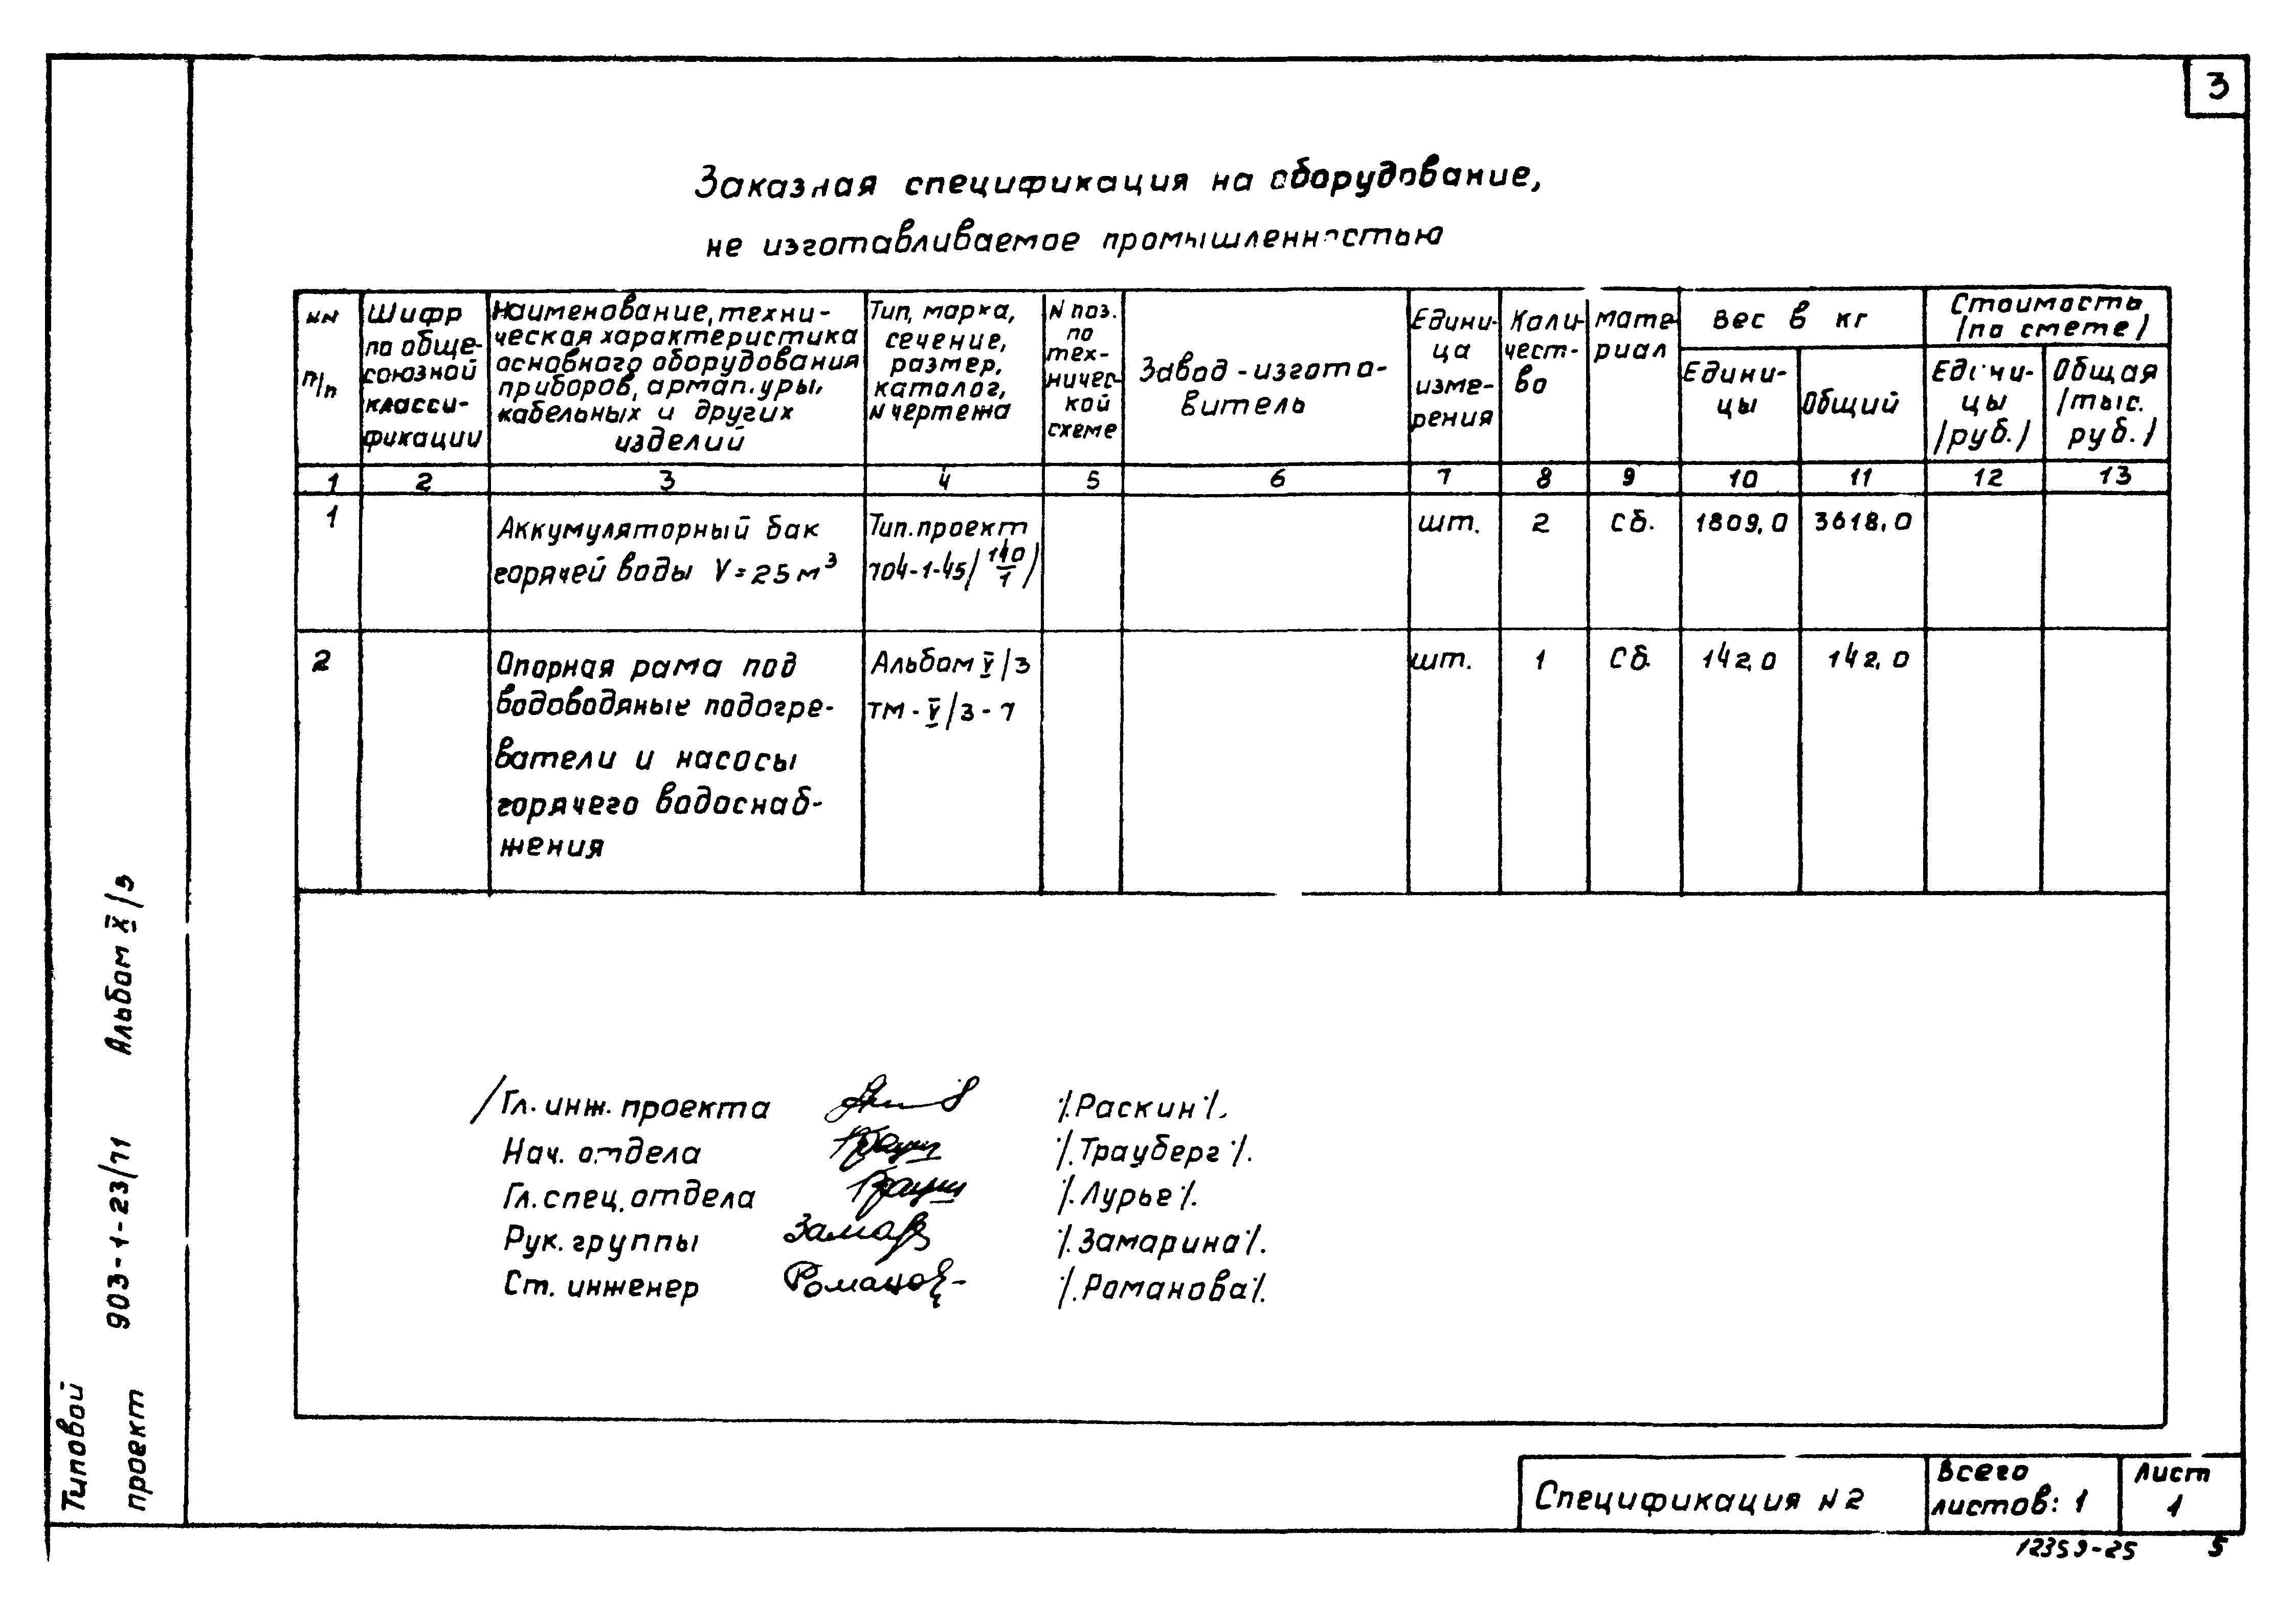 3
Заказная спецификация на оборудование,
не изготавливаемое промышленностью
NN
п/п
Шифр
по обще-
союзной
класси-
фикации
Наименование, техни-
ческая характеристика
основного оборудования
приборов, арматуры,
кабельных и других
изделий
Тип, марка,
сечение,
размер,
каталог,
N чертежа
N поз.
по
тех-
ничес-
кой
схеме
Завод-изгото-
витель
Едини-
ца
изме-
рения
Коли-
чест-
во
мате-
риал
Вес в кг
Едини-
цы
Общий
Стоимость
/по смете/
Едини-
цы
/руб./
Общая
/тыс.
руб./
1 2 3 4 5 6 7 8 9 10 11 12 13
1
Аккумуляторный бак
горячей воды V=25м³
Тип. проект
704-1-45/140/1/
шт. 2 Сб. 1809,0 3618,0
2
Опорная рама под
водоводяные подогре-
ватели и насосы
горячего водоснаб-
жения
Альбом V/3
ТМ-V/3-7
шт. 1 Сб. 142,0 142,0
/Гл. инж. проекта /.Раскин/.
Нач. отдела /.Трауберг/.
Гл. спец. отдела /.Лурье/.
Рук. группы Замар /.Замарина/.
Ст. инженер Романов /.Романова/.
Типовой
проект
903-1-23/71
Альбом X/3
Спецификация N2
Всего
листов: 1
Лист
1
12359-25 5